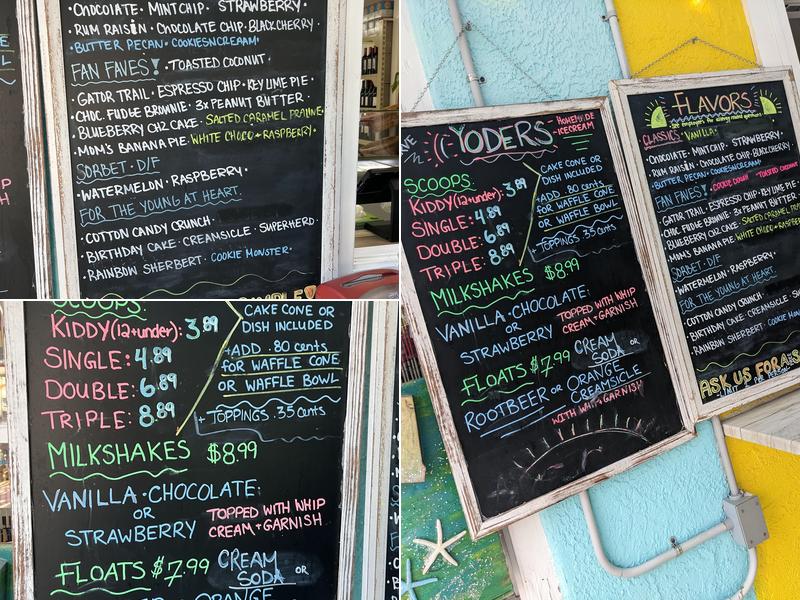 ·CHOCOLATE· MINT CHIP · STRAWBERRY·
·RUM RAISIN · CHOCOLATE CHIP· BLACK CHERRY·
·BUTTER PECAN· COOKIES N CREAAM·
FAN FAVES! ·TOASTED COCONUT·
·GATOR TRAIL · ESPRESSO CHIP · KEY LIME PIE ·
·CHOC FUDGE BROWNIE · 3x PEANUT BUTTER ·
·BLUEBERRY CHZ CAKE · SALTED CARAMEL PRALINE·
·MOM'S BANANA PIE · WHITE CHOCO + RASPBERRY·
SORBET · D/F
·WATERMELON · RASPBERRY ·
FOR THE YOUNG AT HEART.
·COTTON CANDY CRUNCH·
·BIRTHDAY CAKE · CREAMSICLE · SUPERHERO·
·RAINBOW SHERBERT · COOKIE MONSTER·
YODERS
·HOMEMADE
·ICECREAM
SCOOPS:
KIDDY(12+under): 3.89
SINGLE: 4.89
DOUBLE: 6.89
TRIPLE: 8.89
CAKE CONE OR
DISH INCLUDED
+ADD .80 cents
FOR WAFFLE CONE
OR WAFFLE BOWL
+TOPPINGS .35 cents
MILKSHAKES $8.99
VANILLA·CHOCOLATE
OR
STRAWBERRY
TOPPED WITH WHIP
CREAM + GARNISH
FLOATS $7.99
CREAM
SODA OR
ROOTBEER OR ORANGE
CREAMSICLE
WITH WHIP + GARNISH
FLAVORS
CLASSICS VANILLA
·CHOCOLATE· MINT CHIP · STRAWBERRY·
·RUM RAISIN · CHOCOLATE CHIP· BLACK CHERRY·
·BUTTER PECAN· COOKIES N CREAAM
FAN FAVES! TOASTED COCONUT
·GATOR TRAIL · ESPRESSO CHIP · KEY LIME PIE ·
·CHOC FUDGE BROWNIE · 3x PEANUT BUTTER
·BLUEBERRY CHZ CAKE · SALTED CARAMEL
·MOM'S BANANA PIE · WHITE CHOCO + RASPBERRY
SORBET · D/F
·WATERMELON · RASPBERRY ·
FOR THE YOUNG AT HEART.
·COTTON CANDY CRUNCH·
·BIRTHDAY CAKE · CREAMSICLE
·RAINBOW SHERBERT · COOKIE
ASK US FOR A
SCOOPS:
KIDDY(12+under): 3.89
SINGLE: 4.89
DOUBLE: 6.89
TRIPLE: 8.89
CAKE CONE OR
DISH INCLUDED
+ADD .80 cents
FOR WAFFLE CONE
OR WAFFLE BOWL
+ TOPPINGS .35 cents
MILKSHAKES $8.99
VANILLA·CHOCOLATE
OR
STRAWBERRY
TOPPED WITH WHIP
CREAM + GARNISH
FLOATS $7.99
CREAM
SODA OR
ORANGE